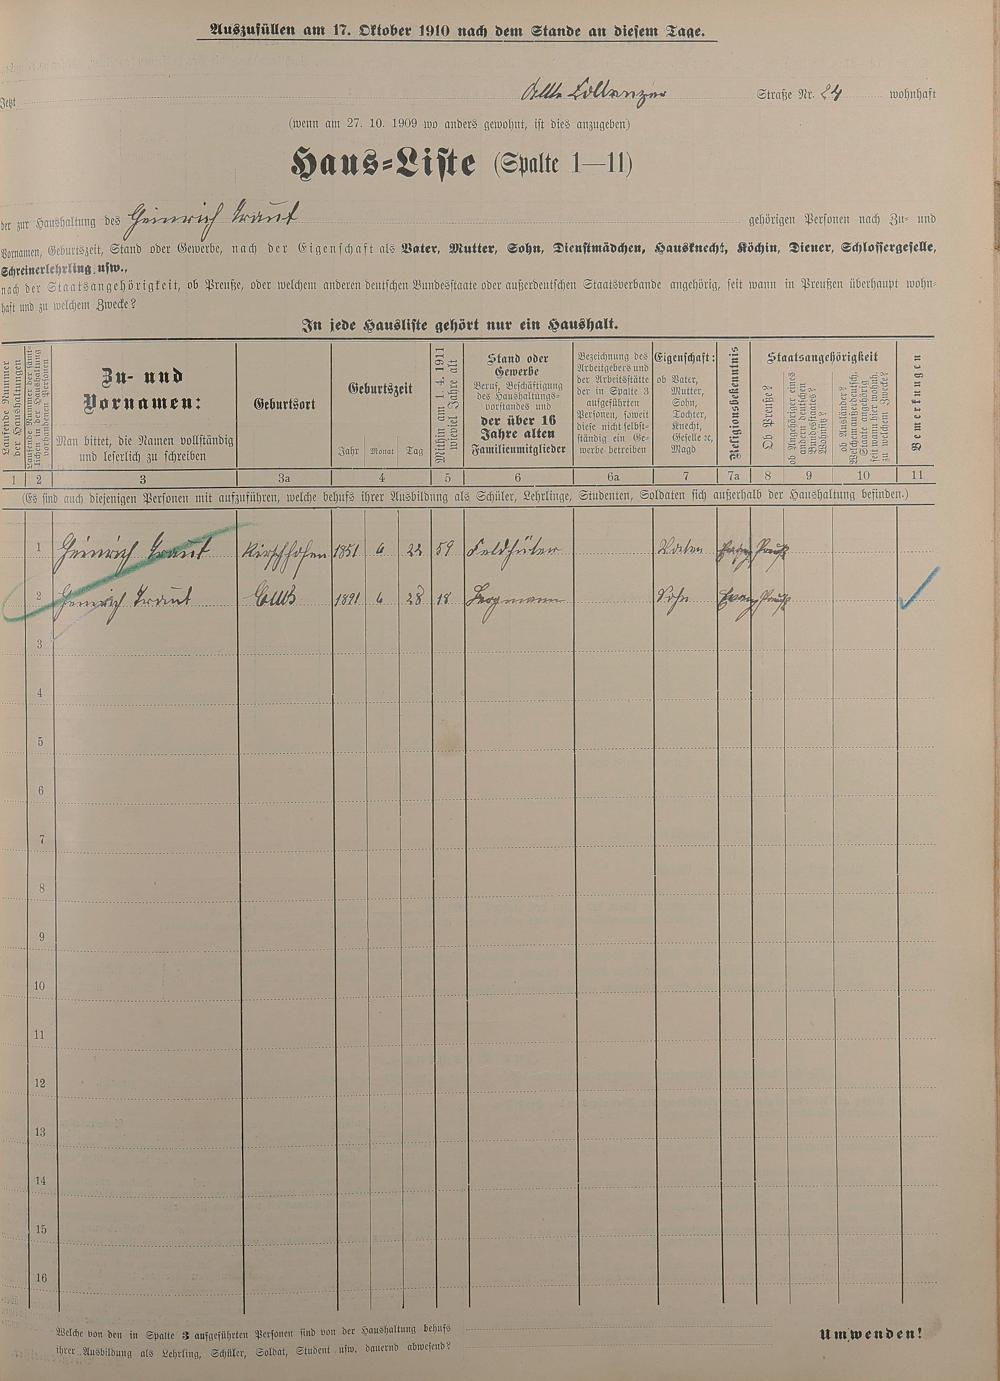 Auszufüllen am 17. Oktober 1910 nach dem Stande an diesem Tage.
Jetzt Straße Nr. 24 wohnhaft
(wenn am 27. 10. 1909 wo anders gewohnt, ist dies anzugeben)
Haus-Liste (Spalte 1—11)
der zur Haushaltung des Heinrich Traut gehörigen Personen nach Zu- und
Vornamen, Geburtszeit, Stand oder Gewerbe, nach der Eigenschaft als Vater, Mutter, Sohn, Dienstmädchen, Hausknecht, Köchin, Diener, Schlossergeselle,
Schreinerlehrling, usw.,
nach der Staatsangehörigkeit, ob Preuße, oder welchem anderen deutschen Bundesstaate oder außerdeutschen Staatsverbande angehörig, seit wann in Preußen überhaupt wohn-
haft und zu welchem Zwecke?
In jede Hausliste gehört nur ein Haushalt.
Laufende Nummer
der Haushaltungen
Laufende Nummer der sämt-
lichen in der Haushaltung
vorhandenen Personen
Zu- und
Vornamen:
Man bittet, die Namen vollständig
und leserlich zu schreiben
Geburtsort
Geburtszeit
Jahr Monat Tag
Mithin am 1. 4. 1911
wieviel Jahre alt
Stand oder
Gewerbe
Beruf, Beschäftigung
des Haushaltungs-
vorstandes und
der über 16
Jahre alten
Familienmitglieder
Bezeichnung des
Arbeitgebers und
der Arbeitsstätte
der in Spalte 3
aufgeführten
Personen, soweit
diese nicht selbst-
ständig ein Ge-
werbe betreiben
Eigenschaft:
ob Vater,
Mutter,
Sohn,
Tochter,
Knecht,
Geselle ꝛc,
Magd
Religionsbekenntnis
Staatsangehörigkeit
Ob Preuße?
ob Angehöriger eines
andern deutschen
Bundesstaates?
ob Ausländer?
Welchem außerdeutsch.
Staate angehörig
seit wann hier wohnh.
zu welchem Zwecke?
Bemerkungen
1 2 3 3a 4 5 6 6a 7 7a 8 9 10 11
(Es sind auch diejenigen Personen mit aufzuführen, welche behufs ihrer Ausbildung als Schüler, Lehrlinge, Studenten, Soldaten sich außerhalb der Haushaltung befinden.)
1 Heinrich Traut Kirschhofen 1851 6 22 59 Feldhüter Vater Evang Preuß
2 Heinrich Traut Ems 1891 6 28 18 Bergmann Sohn Evang Preuß
3
4
5
6
7
8
9
10
11
12
13
14
15
16
Welche von den in Spalte 3 aufgeführten Personen sind von der Haushaltung behufs
ihrer Ausbildung als Lehrling, Schüler, Soldat, Student usw. dauernd abwesend?
Umwenden!